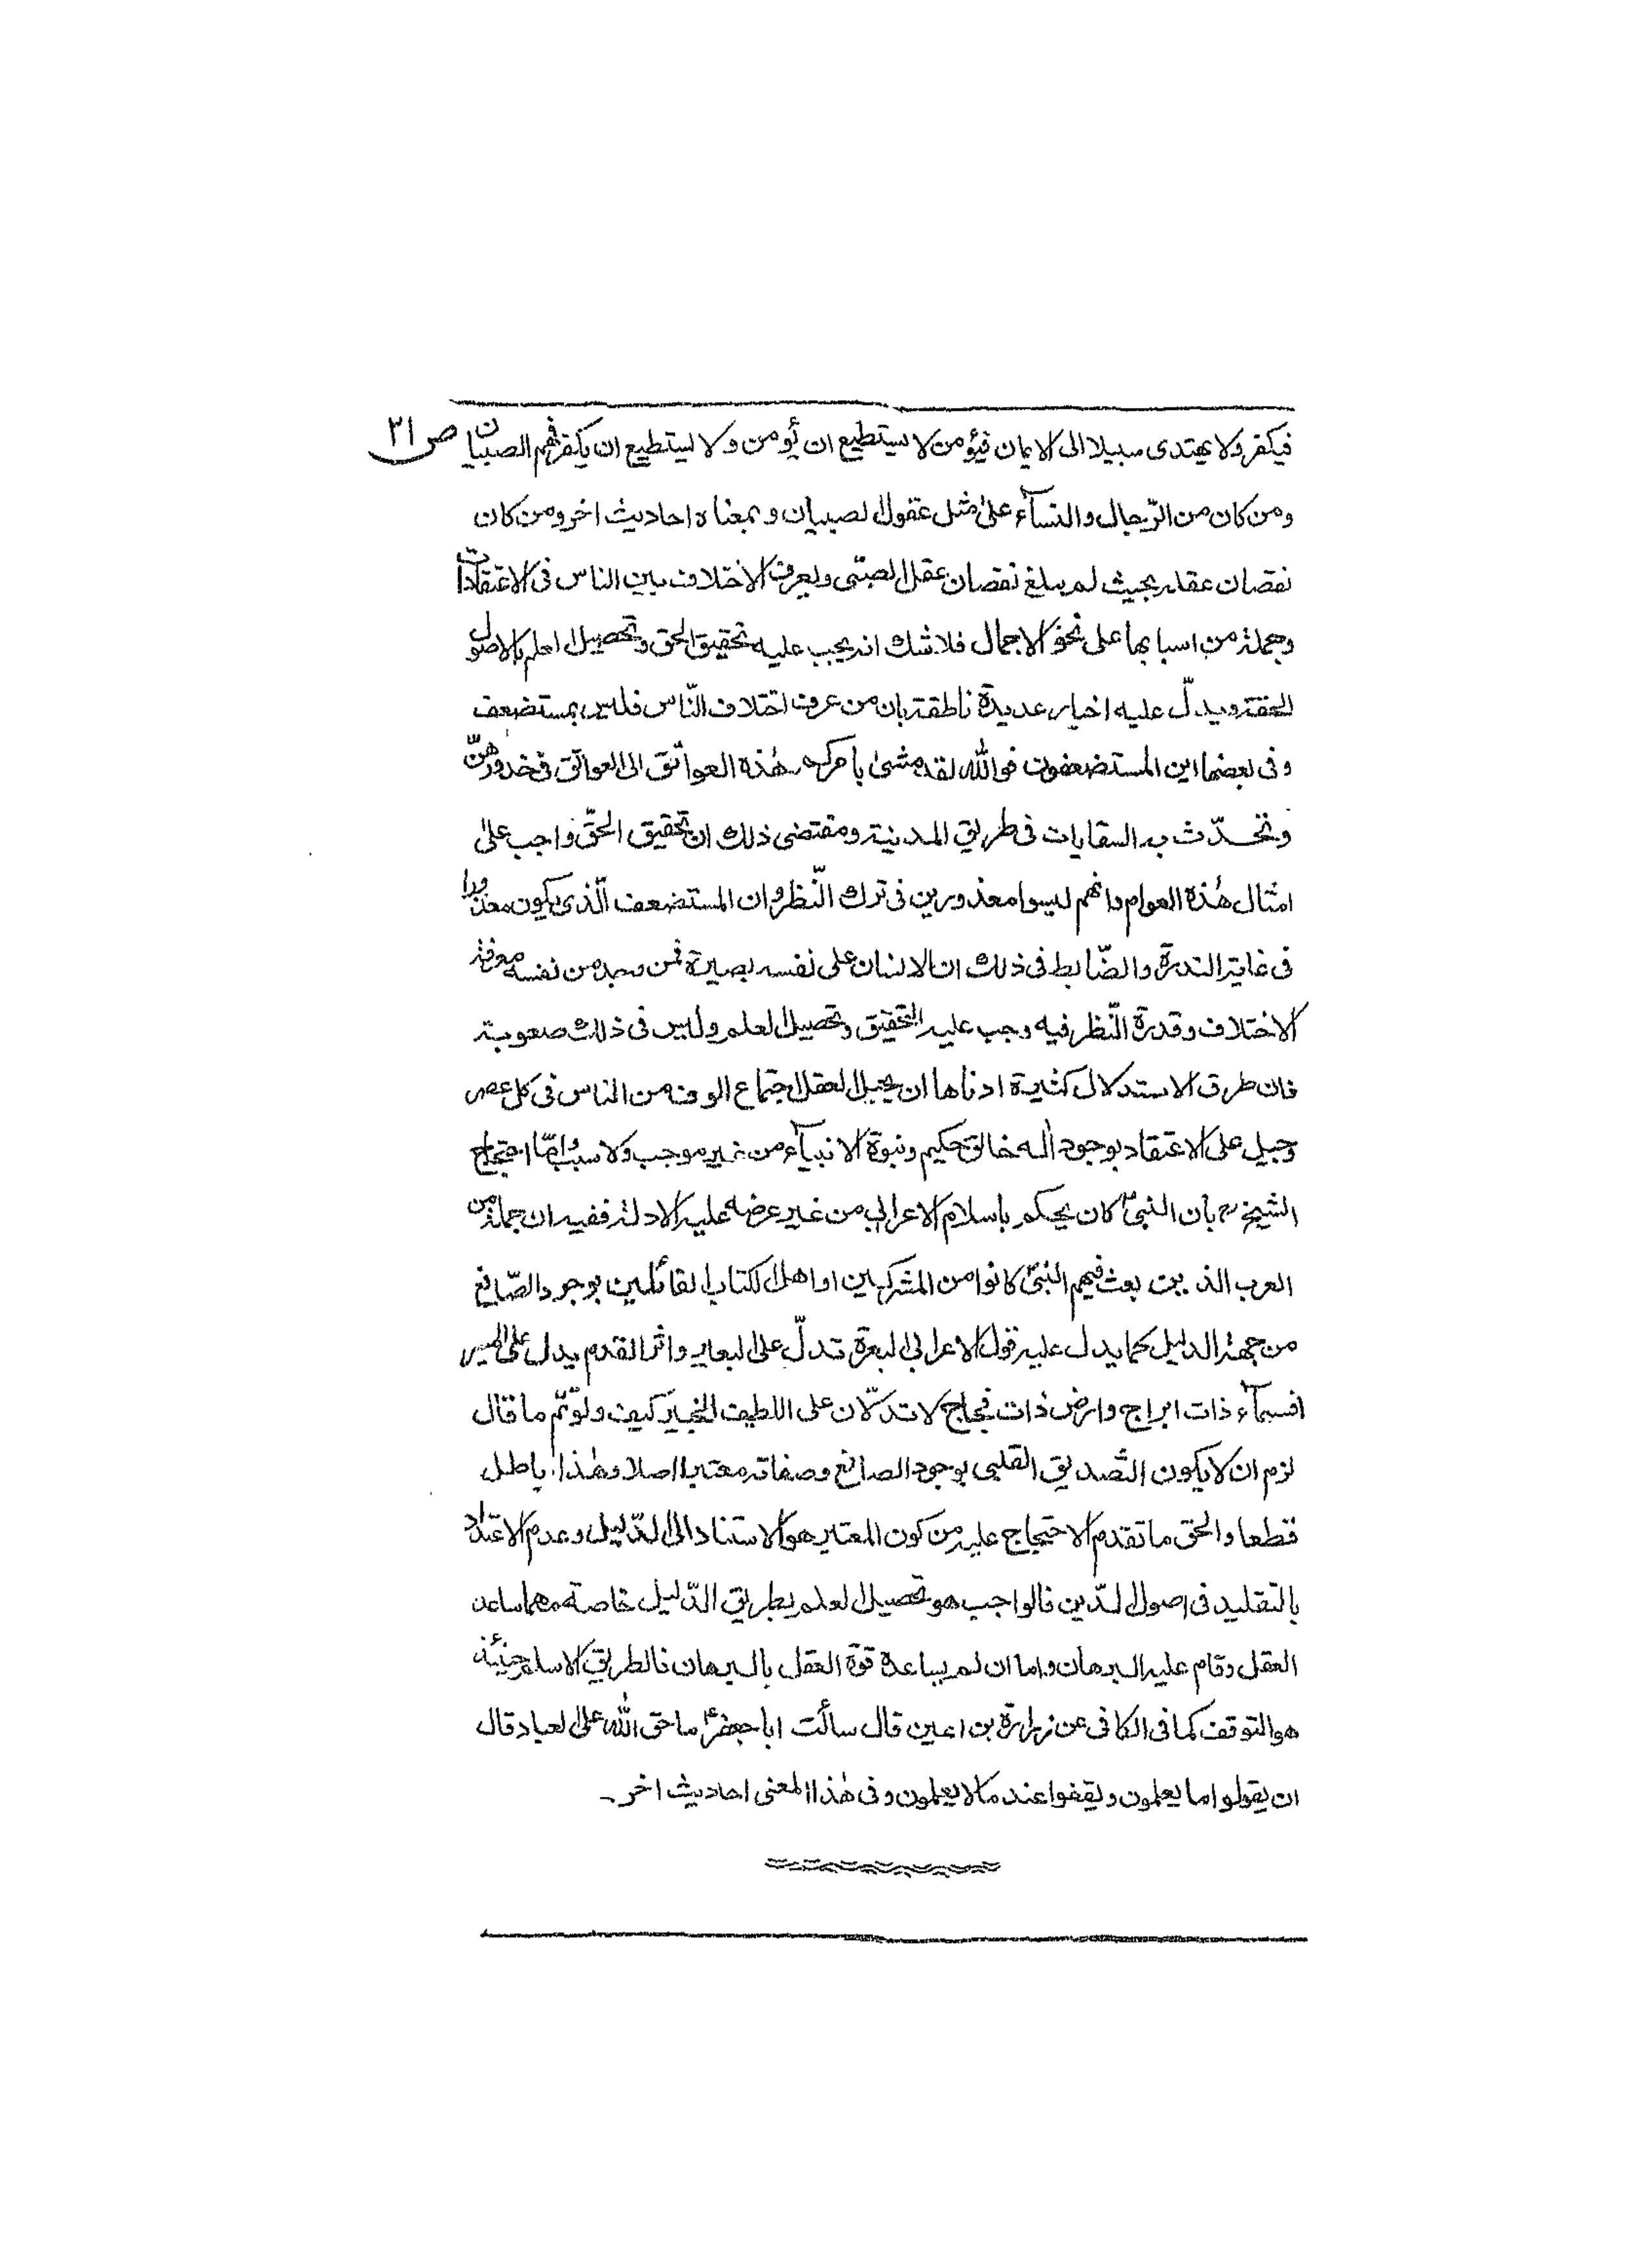 فيكفر ولا يهتدى سبيلا الى الايمان فيؤمن لا يستطيع ان يؤمن ولا يستطيع ان يكفر فهم الصبيان ص ٣١
ومن كان من الرّجال والنسآء على مثل عقول الصبيان وبمعناه احاديث اخر ومن كان
نقصان عقله بحيث لم يبلغ نقصان عقل الصبّى ويعرف الاختلاف بين الناس فى الاعتقادات
وجملة من اسبابها على نحو الاجمال فلا شك انه يجب عليه تحقيق الحق وتحصيل العلم بالاصول
الحقة ويدلّ عليه اخبار عديدة ناطقة بان من عرف اختلاف النّاس فليس بمستضعف
وفى بعضها اين المستضعفون فوالله لقد مشى بامركم هذه العواتق الى العواتق فى خدورهنّ
وتحدّث به السقايات فى طريق المدينة ومقتضى ذلك ان تحقيق الحقّ واجب على
امثال هذه العوام وانهم ليسوا معذورين فى ترك النّظر وان المستضعف الّذى يكون معذورا
فى غاية الندرة والضّابط فى ذلك ان الانسان على نفسه بصيرة فمن وجد من نفسه معرفة
الاختلاف وقدرة النّظر فيه وجب عليه التحقيق وتحصيل العلم وليس فى ذلك صعوبة
فان طرق الاستدلال كثيرة ادناها ان يحيل العقل اجتماع الوف من الناس فى كل عصر
وجيل على الاعتقاد بوجود اله خالق حكيم ونبوة الانبيآء من غير موجب ولا سبب وامّا احتجاج
الشيخ ره بان النبى ص كان يحكم باسلام الاعرابى من غير عرضه عليه الادلة ففيه ان جملة من
العرب الذين بعث فيهم النبىّ كانوا من المشركين او اهل الكتاب القائلين بوجود الصّانع
من جهة الدليل كما يدل عليه قول الاعرابى البعرة تدلّ على البعير واثر القدم يدل على المسير
افسمآء ذات ابراج وارض ذات فجاج لا تدلّان على اللطيف الخبير كيف ولو تمّ ما قال
لزم ان لا يكون التّصديق القلبى بوجود الصانع وصفاته معتبرا اصلا وهذا باطل
قطعا والحق ما تقدم الاحتجاج عليه من كون المعتبر هو الاستناد الى الدّليل وعدم الاعتداد
بالتقليد فى اصول الدّين فالواجب هو تحصيل العلم بطريق الدّليل خاصة مهما ساعد
العقل وقام عليه البرهان واما ان لم يساعده قوة العقل بالبرهان فالطريق الاسلم حينئذ
هو التوقف كما فى الكافى عن زرارة بن اعين قال سألت ابا جعفر ع ما حق الله على العباد قال
ان يقولوا ما يعلمون ويقفوا عند ما لا يعلمون وفى هذا المعنى احاديث اخر ۔